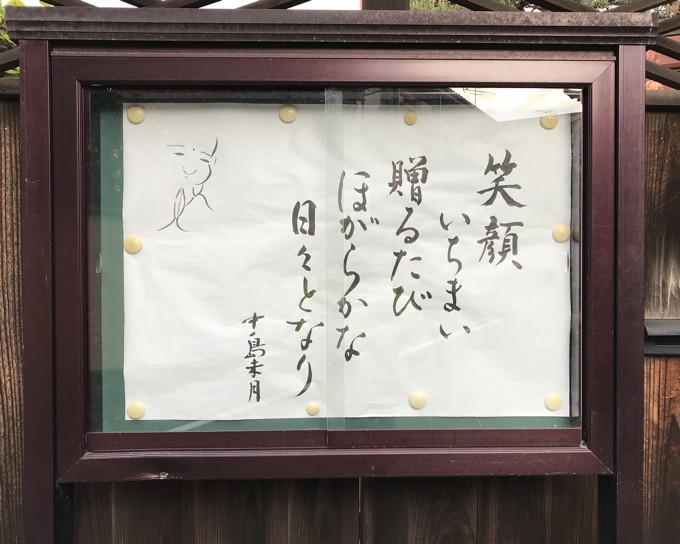 笑顔
いちまい
贈るたび
ほがらかな
日々となり
中島未月